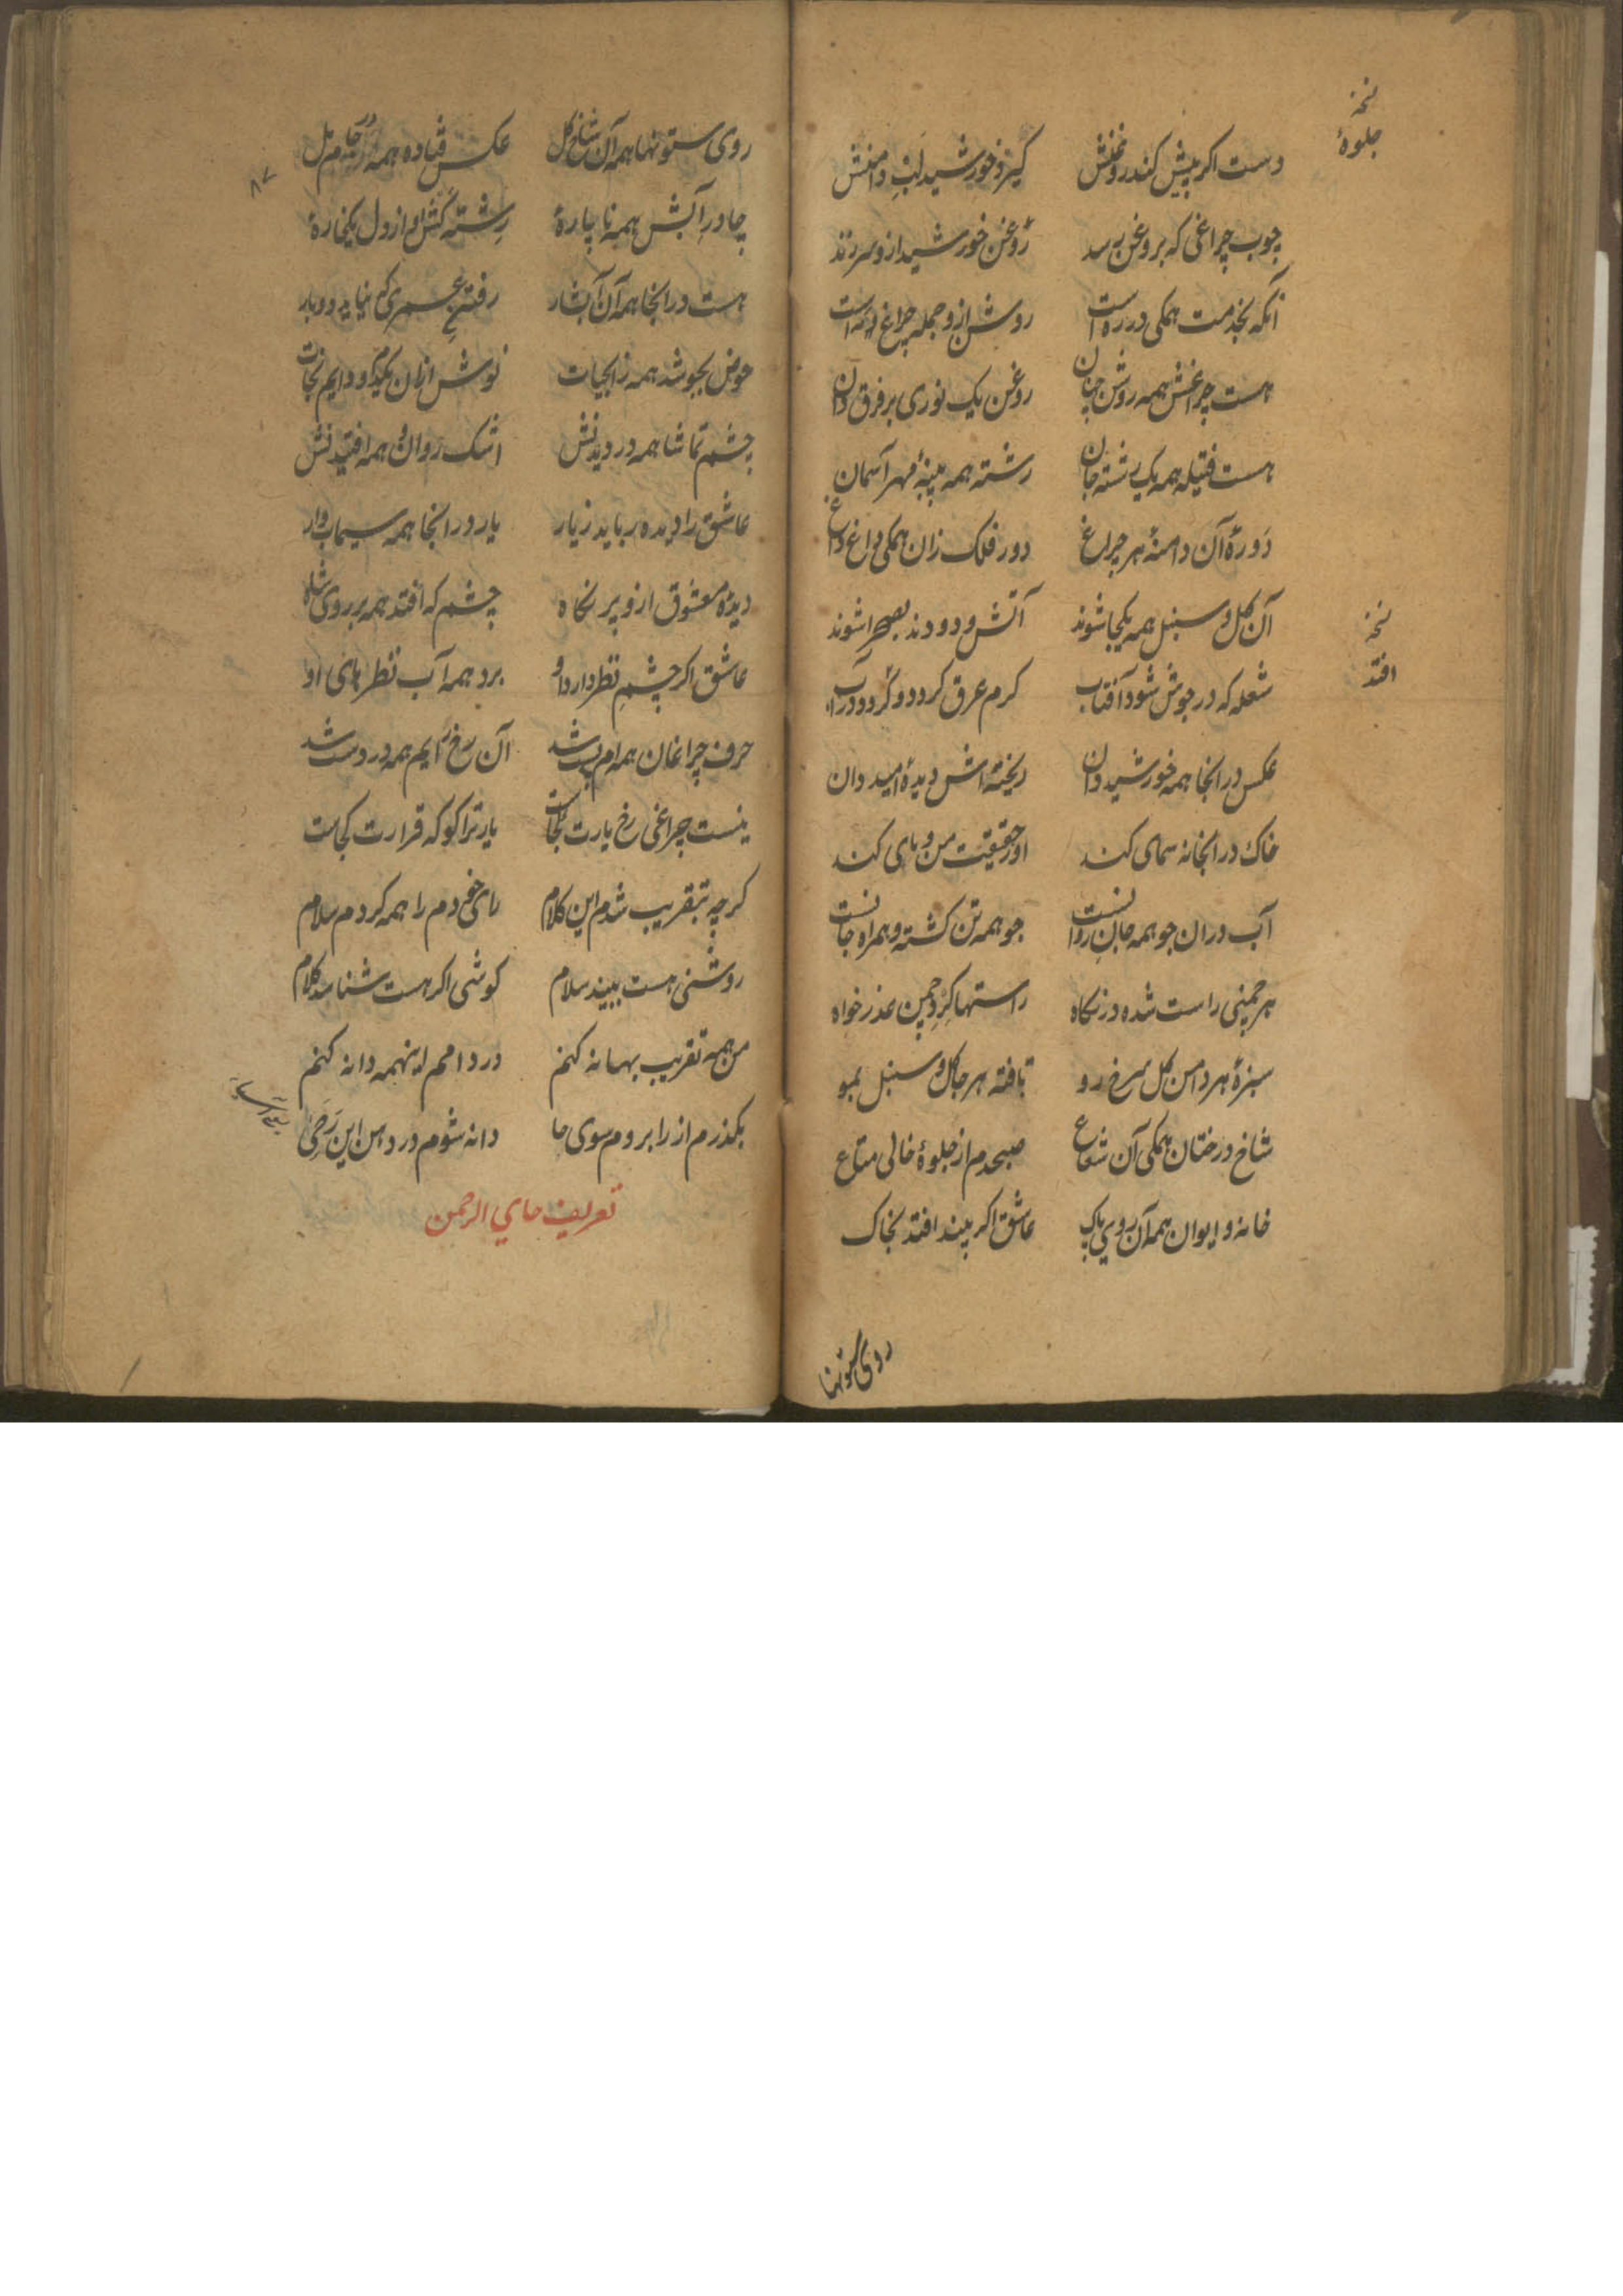 نخه
جلوهٔ
دست اکر پیش کند روغنش کیرد خورشید لب دامنش
چوب چراغی که بروغن رسد روغن خورشید ازو سر زند
آنکه بخدمت همکی در ره است روشن ازو جمله چراغ است
هست چراغش همه روشن چنان روغن یک نوری بر فرق دان
هست فتیله همه یک رشته جان رشته همه پنبهٔ مهر آسمان
دورهٔ آن دامنهٔ هر چراغ دور فلک زان همکی داغ داغ
آن کل و سنبل همه یکجا شوند آتش و دودند بصحرا شوند
نخه
افتد
شعله که در جوش شود آفتاب کرم عرق کردد و کردد در آب
عکس در انجا همه خورشید دان ریخته اش دیدهٔ امید دان
خاک در انجا نه سمای کند او حقیقت من و مای کند
آب دران جو همه جان روانست جو همه تن کشته و همراه جانست
هر چمنی راست شده در نکاه راستها کرد چمن عذر خواه
سبزهٔ هر دامن کل سرخ رو تافته هر جا کل و سنبل بمو
شاخ درختان همکی آن شعاع صبحدم از جلوهٔ خالی متاع
خانه و ایوان همه آن روی پاک عاشق اکر بیند افتد بخاک
روی ستونها
۸۷
روی ستونها همه آن شاخ کل عکس فتاده همه در جام مل
چادر آبش همه نا پارهٔ رشتهٔ کش او از دل یکپارهٔ
هست در انجا همه آن آبشار رفتن عمری که نیاید دوبار
حوض بجوشد همه ز ابحیات نوش ازان یکدم و دایم نجات
چشم تماشا همه در دیدنش اشک روان همه افتیدنش
عاشق را دیده رباید زیار یار در انجا همه سیماب وار
دیدهٔ معشوق ازو پر نکاه چشم که افتد همه بر روی شاه
عاشق اکر چشم نظر دارد او برد همه آب نظرهای او
حرف چراغان همه ام پست شد آن رخ رایم همه در دست شد
نیست چراغی رخ یارت کجاست یار ترا کو که قرارت کجاست
کرچه بتقریب شدم این کلام رای خودم را همه کردم سلام
روشنی هست ببیند سلام کوشی اکر هست شناسد کلام
من همه تقریب بهانه کنم در دامم اینهمه دانه کنم
بکذرم از را بروم سوی حا دانه شوم در دهن این رحی
تعریف حاي الرحمن